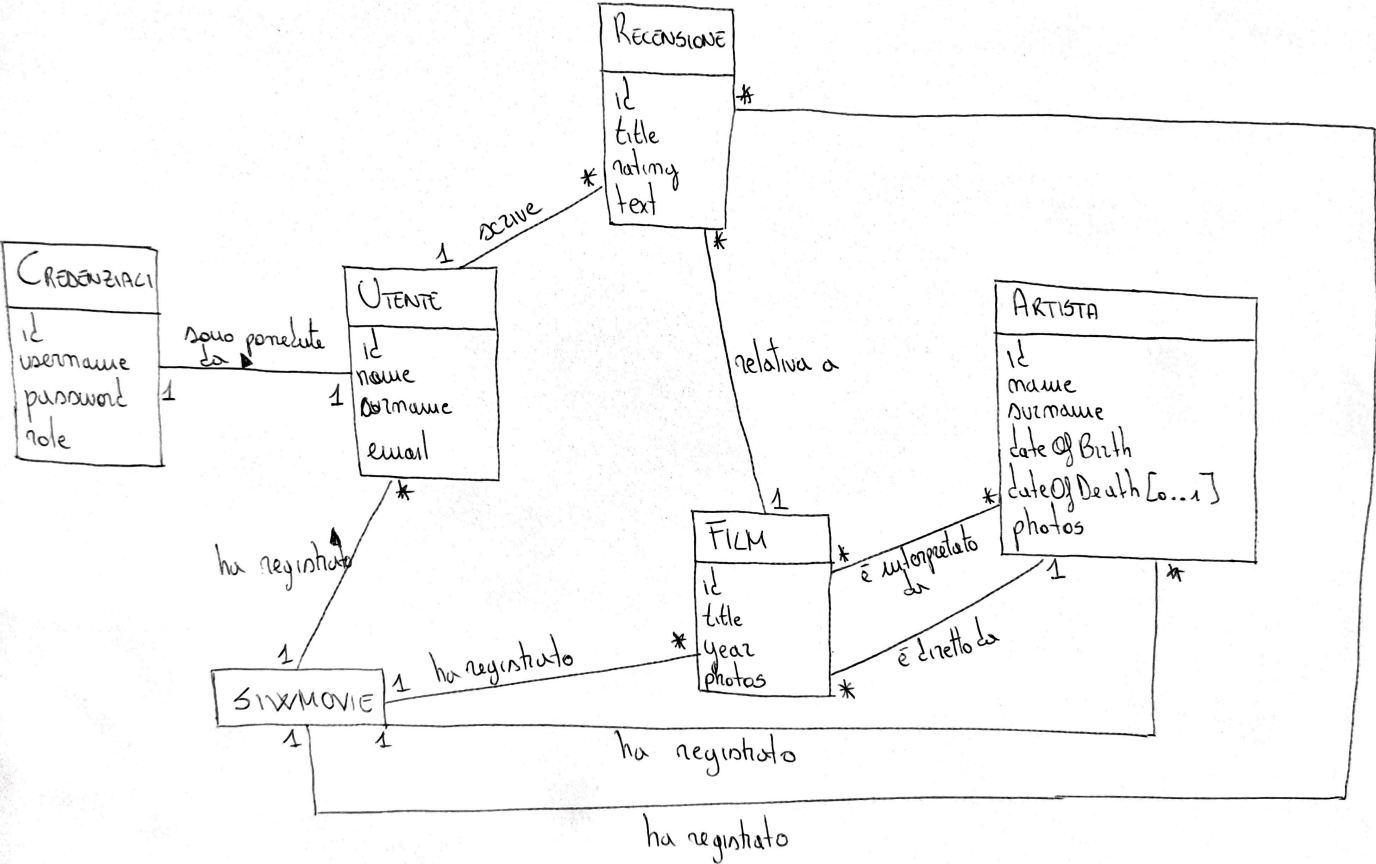 RECENSIONE
id
title
rating
text
*
*
*
scrive
1
CREDENZIALI
id
username
password
role
1
sono possedute
da
1
UTENTE
id
name
surname
email
*
relativa a
1
ARTISTA
id
name
surname
dateOfBirth
dateOfDeath [0...1]
photos
*
1
*
FILM
id
title
year
photos
*
è interpretato
da
è diretto da
*
*
ha registrato
1
SIWMOVIE
1
ha registrato
1
1
ha registrato
ha registrato